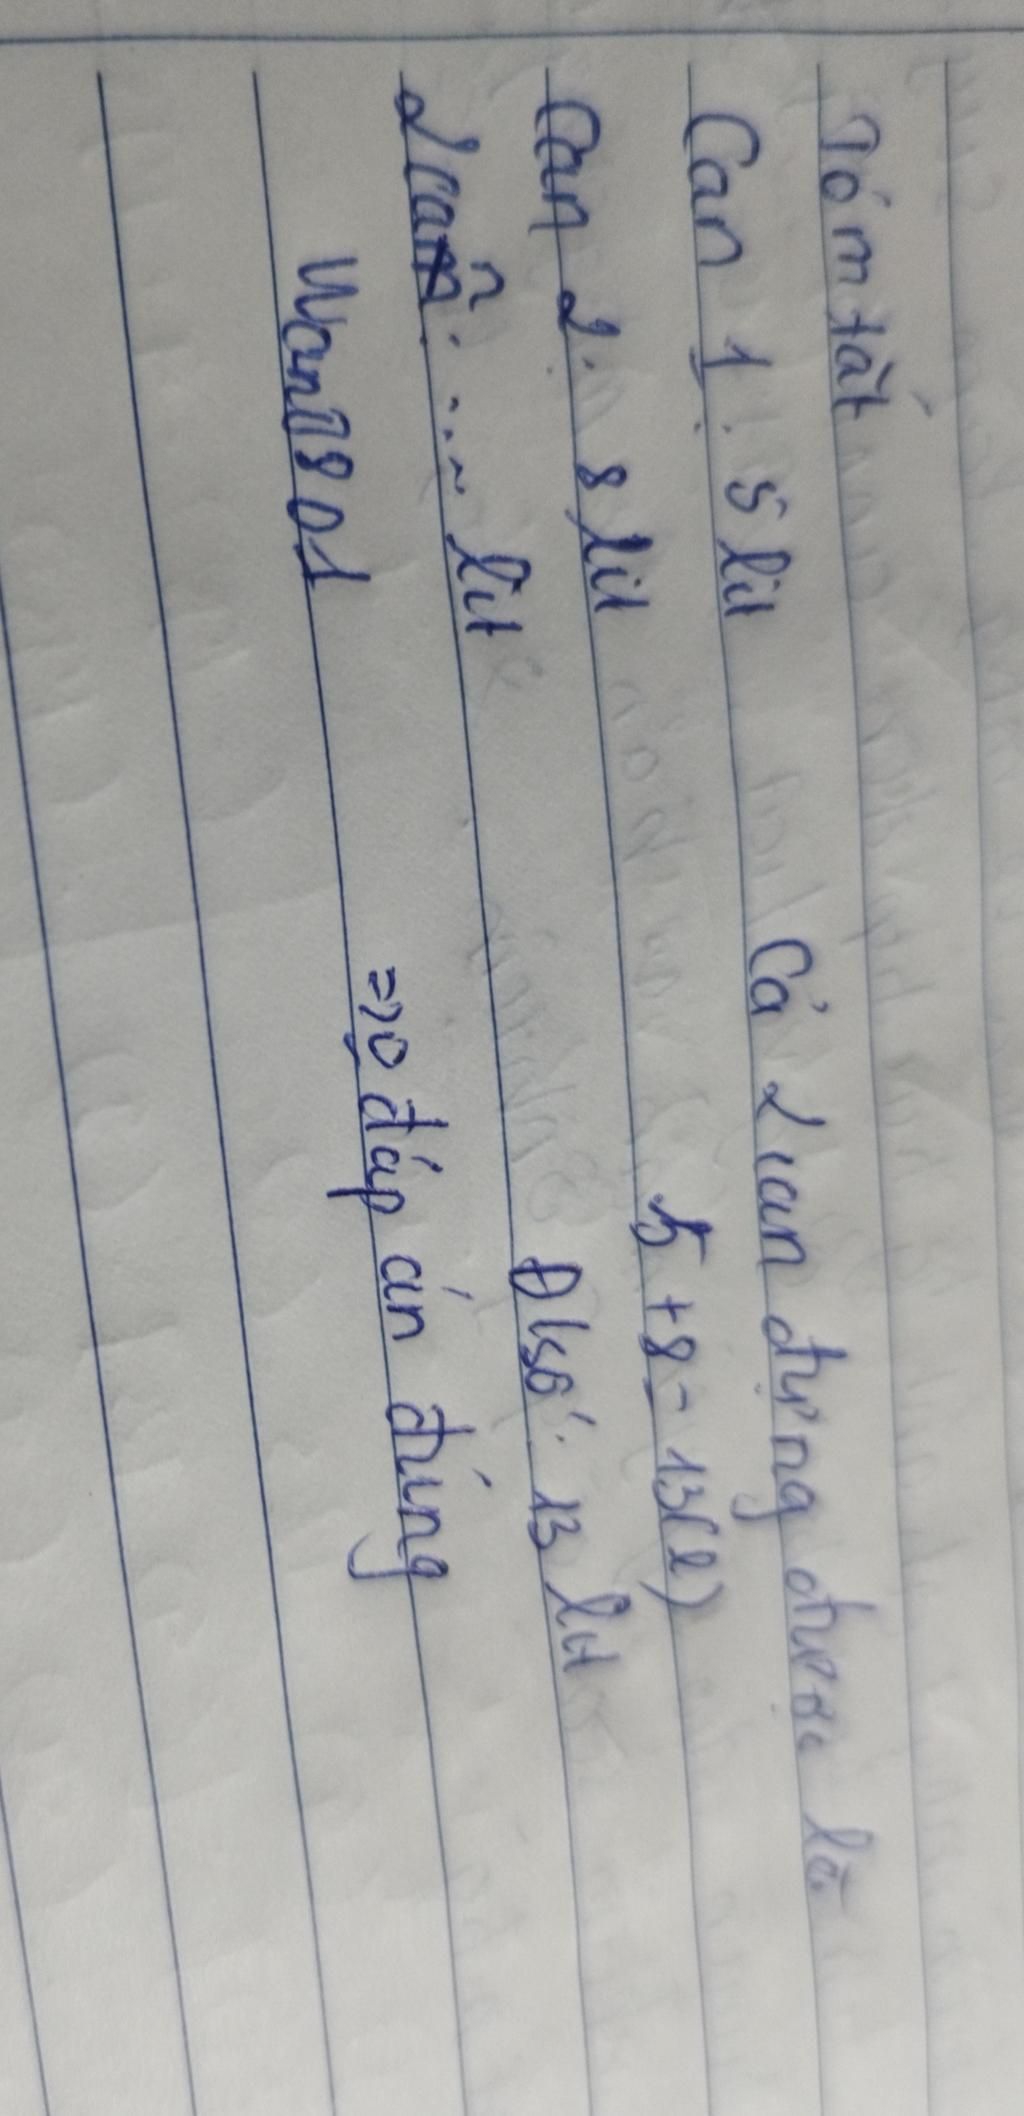 Tóm tắt
Can 1: 5 lít
Cả 2 can đựng được là
Can 2: 8 lít
5 + 8 = 13(l)
2 can: ... lít
Đ/số: 13 lít
=> đáp án đúng